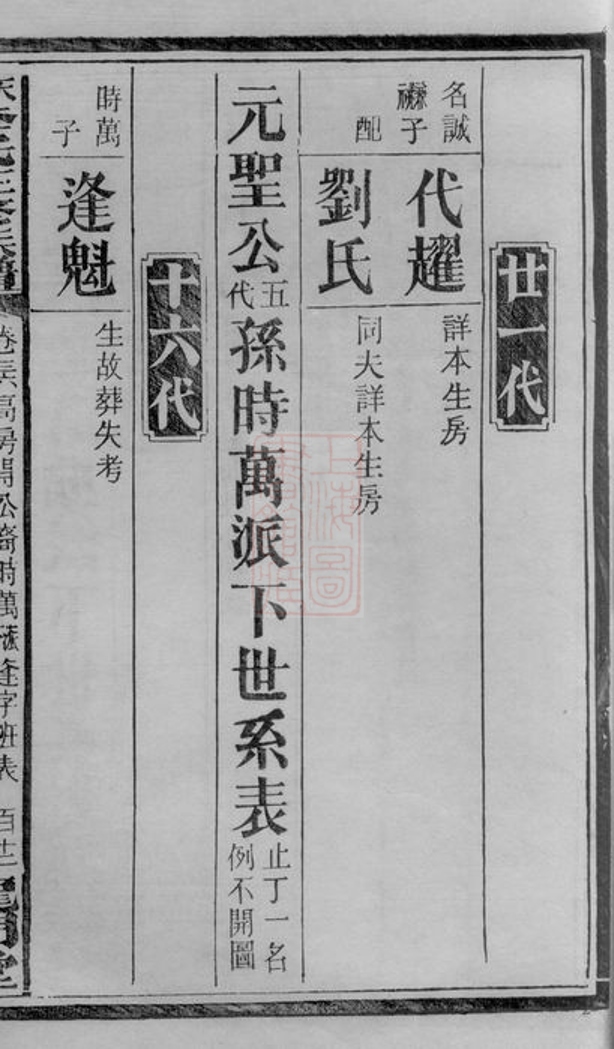 廿一代
名誠
子
代耀
詳本生房
配
劉氏
同夫詳本生房
元聖公五代孫時萬派下世系表止丁一名例不開圖
十六代
時萬
子
逢魁
生故葬失考
時萬派逢字班表